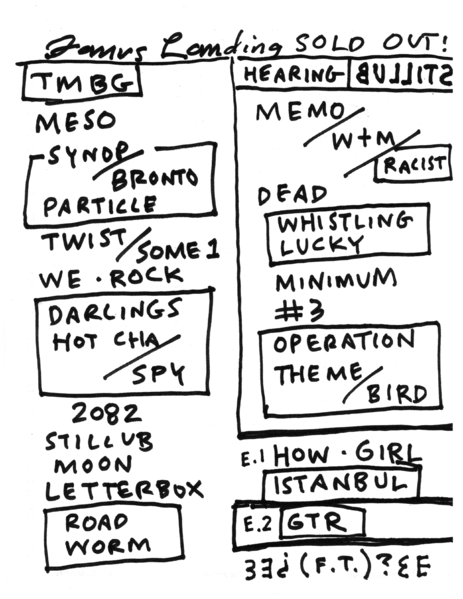 Janus Landing SOLD OUT!
TMBG
MESO
SYNOP/
BRONTO
PARTICLE
TWIST/SOME 1
WE · ROCK
DARLINGS
HOT CHA/
SPY
2082
STILLUB
MOON
LETTERBOX
ROAD
WORM
HEARING BULLITS
MEMO/
W+M/
RACIST
DEAD
WHISTLING
LUCKY
MINIMUM
#3
OPERATION
THEME/
BIRD
E.1 HOW · GIRL
ISTANBUL
E.2 GTR
(F.T.)